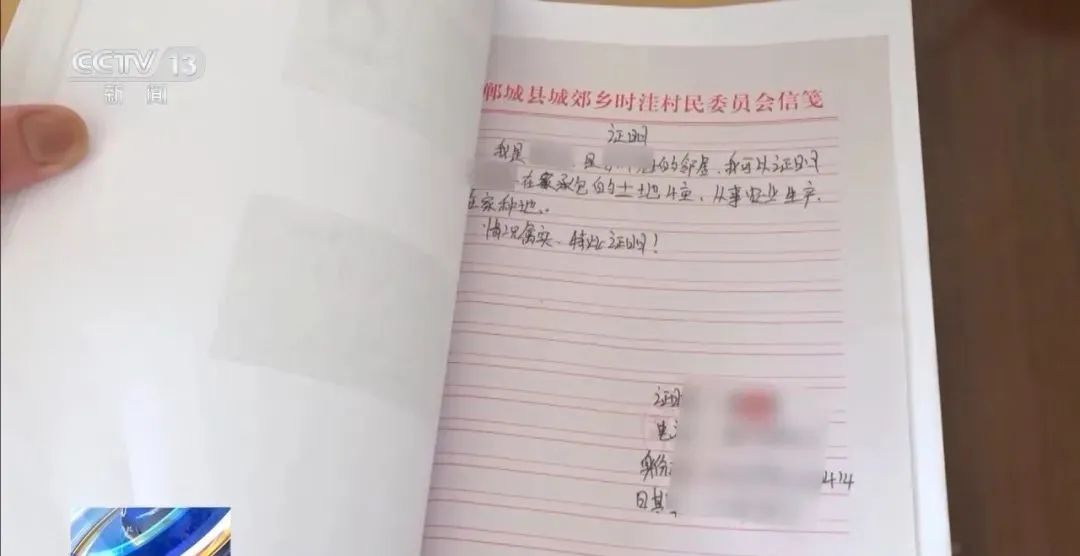 CCTV 13
新闻
郸城县城郊乡时洼村民委员会信笺
证明
我是 是 的邻居、我可以证明
在家承包的土地4亩、从事农业生产、
在家种地、
情况属实、特此证明!
证明
电
身份 424
日期